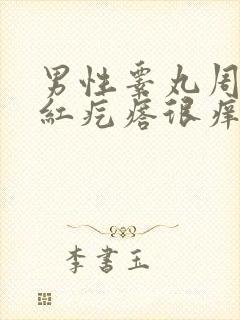 男性睾丸周
紅疙瘩很痒
李書玉